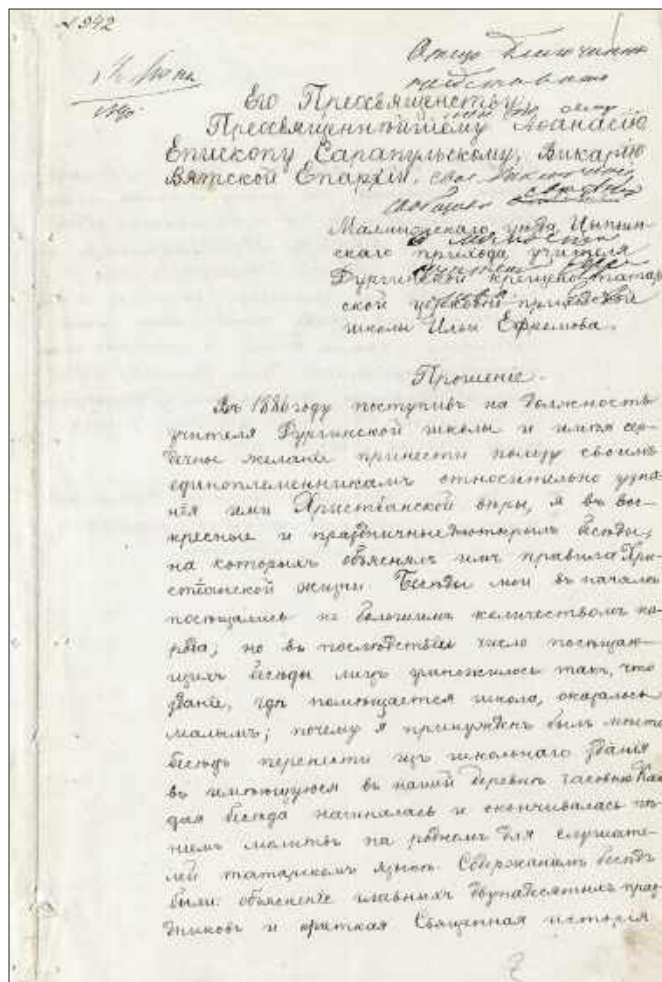 № 942
Отцу Благочинному
представить
Его Преосвященству,
Преосвященнѣйшему Аѳанасію
Епископу Сарапульскому, Викарію
Вятской Епархіи.
Малмыжскаго уѣзда Цыпьин-
скаго прихода учителя
Дургинской крещено-татар-
ской церковно-приходской
школы Ильи Ефремова.
Прошеніе.
Въ 1886 году поступивъ на должность
учителя Дургинской школы и имѣя сер-
дечное желаніе принести пользу своимъ
единоплеменникамъ относительно узна-
нія ими Христіанской вѣры, я въ вос-
кресные и праздничные дни открылъ бесѣды,
на которыхъ объяснялъ имъ правила Хри-
стіанской жизни. Бесѣды мои въ началѣ
посѣщались не большимъ количествомъ на-
рода; но въ послѣдствіи число посѣщаю-
щихъ бесѣды лицъ умножилось такъ, что
зданіе, гдѣ помѣщается школа, оказалось
малымъ; почему я принужденъ былъ мѣсто
бесѣдъ перенести изъ школьнаго зданія
въ имѣющуюся въ нашей деревнѣ часовню. Каж-
дая бесѣда начиналась и скончивалась пѣ-
ніемъ молитвъ на родномъ для слушате-
лей татарскомъ языкѣ. Содержаніемъ бесѣдъ
были: объясненіе главныхъ двунадесятыхъ празд-
никовъ и краткая Священная исторія